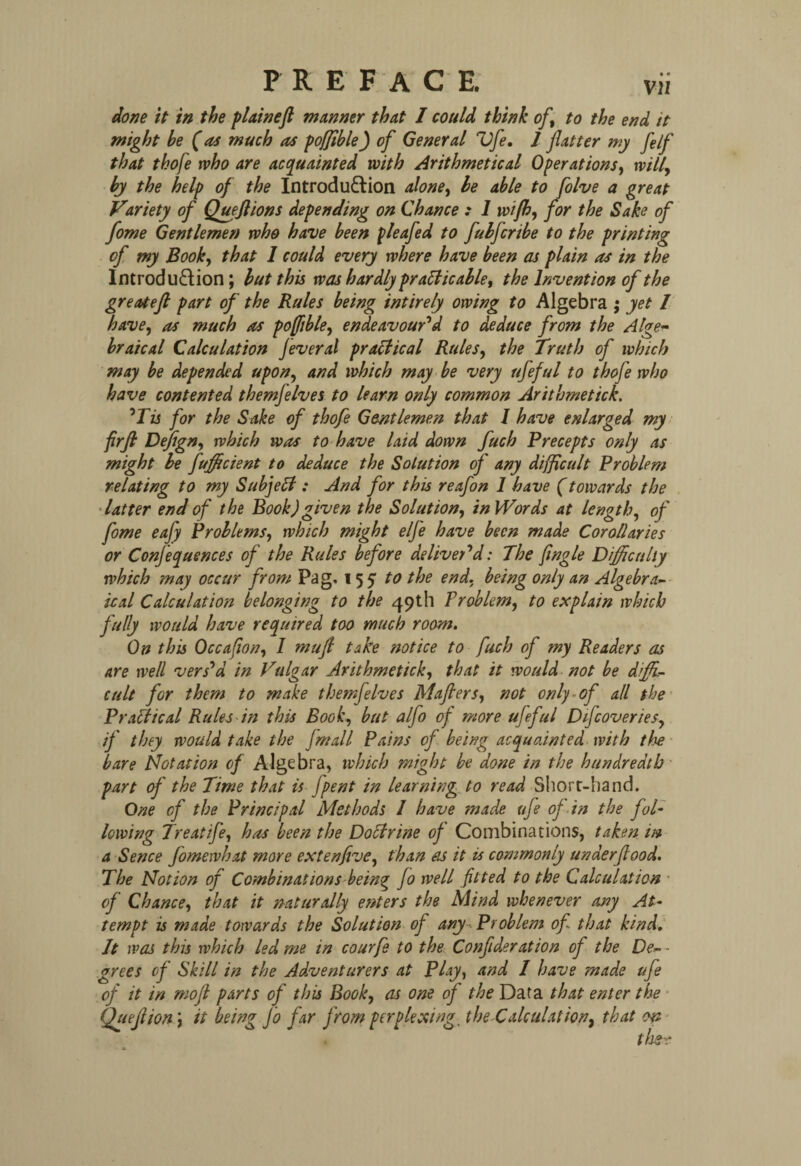 PREFACE. vii
done it in the plainest manner that I could think of, to the end it
might be (as much as possible) of General Use. I flatter my self
that those who are acquainted with Arithmetical Operations, will,
by the help of the Introduction alone, be able to solve a great
Variety of Questions depending on Chance : I wish, for the Sake of
some Gentlemen who have been pleased to subscribe to the printing
of my Book, that I could every where have been as plain as in the
Introduction; but this was hardly practicable, the Invention of the
greatest part of the Rules being intirely owing to Algebra ; yet I
have, as much as possible, endeavour'd to deduce from the Alge-
braical Calculation several practical Rules, the Truth of which
may be depended upon, and which may be very useful to those who
have contented themselves to learn only common Arithmetick.
'Tis for the Sake of those Gentlemen that I have enlarged my
first Design, which was to have laid down such Precepts only as
might be sufficient to deduce the Solution of any difficult Problem
relating to my Subject : And for this reason I have (towards the
latter end of the Book) given the Solution, in Words at length, of
some easy Problems, which might else have been made Corollaries
or Consequences of the Rules before deliver'd: The single Difficulty
which may occur from Pag. 155 to the end, being only an Algebra-
ical Calculation belonging to the 49th Problem, to explain which
fully would have required too much room.
On this Occasion, I must take notice to such of my Readers as
are well vers'd in Vulgar Arithmetick, that it would not be diffi-
cult for them to make themselves Masters, not only of all the
Practical Rules in this Book, but also of more useful Discoveries,
if they would take the small Pains of being acquainted with the
bare Notation of Algebra, which might be done in the hundredth
part of the Time that is spent in learning to read Short-hand.
One of the Principal Methods I have made use of in the fol-
lowing Treatise, has been the Doctrine of Combinations, taken in
a Sence somewhat more extensive, than as it is commonly understood.
The Notion of Combinations being so well fitted to the Calculation
of Chance, that it naturally enters the Mind whenever any At-
tempt is made towards the Solution of any Problem of that kind.
It was this which led me in course to the Consideration of the De-
grees of Skill in the Adventurers at Play, and I have made use
of it in most parts of this Book, as one of the Data that enter the
Question; it being so far from perplexing the Calculation, that on
the